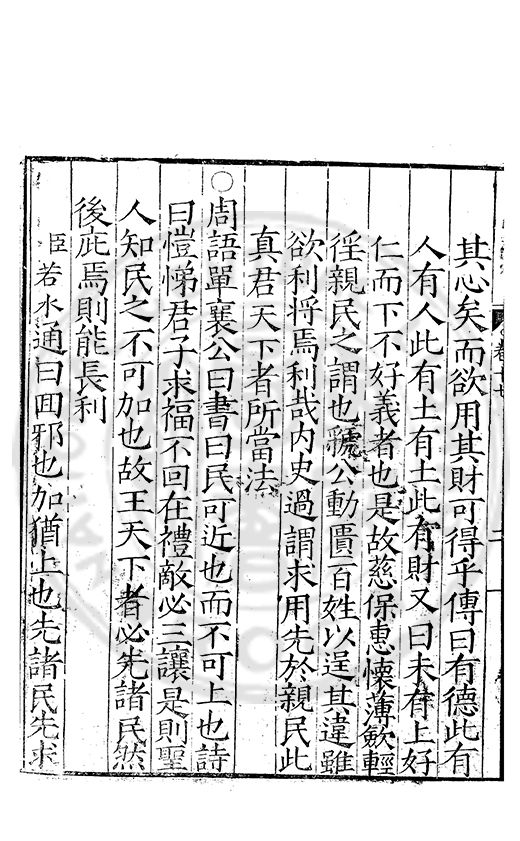 其心矣而欲用其財可得乎傳曰有德此有
人有人此有土有土此有財又曰未有上好
仁而下不好義者也是故慈保惠懷薄歛輕
徭親民之謂也虢公動匱百姓以逞其違雖
欲利將焉利哉内史過謂求用先於親民此
真君天下者所當法
○周語單襄公曰書曰民可近也而不可上也詩
曰愷悌君子求福不回在禮敵必三讓是則聖
人知民之不可加也故王天下者必先諸民然
後庇焉則能長利
臣若水通曰回邪也加猶上也先諸民先求